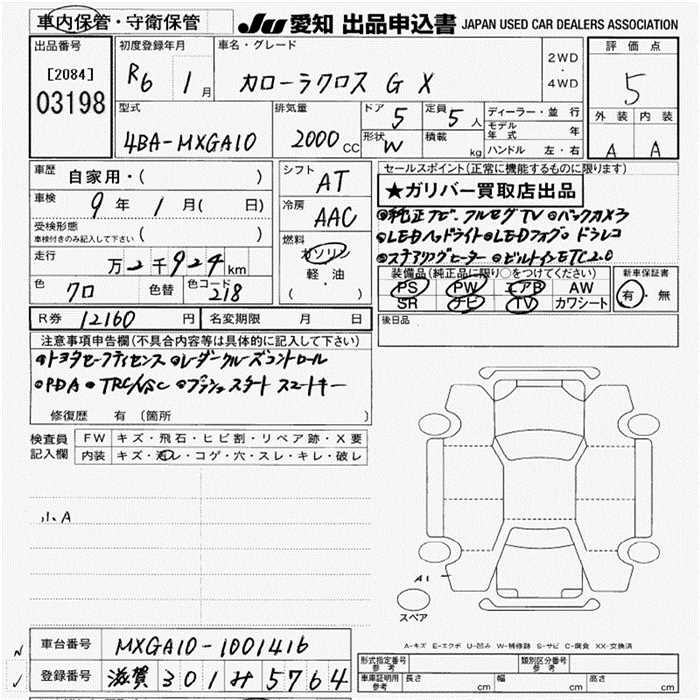 車内保管・守衛保管
JU 愛知 出品申込書 JAPAN USED CAR DEALERS ASSOCIATION
出品番号 [2084] 03198
初度登録年月 R6 1月
車名・グレード カローラクロス G X
2WD・4WD
評価点 5
外装 A 内装 A
型式 4BA-MXGA10
排気量 2000cc
ドア 5 定員 5人
形状 W 積載 kg
ディーラー・並行
モデル年式 年
ハンドル 左・右
車歴 自家用・( )
車検 9年1月( 日)
受検形態 車検付きのみ記入して下さい ( )
走行 万2千924km
色 クロ 色替 色コード 218
シフト AT
冷房 AAC
燃料 ガソリン 軽・油 ( )
セールスポイント(正常に機能するものに限ります)
★ガリバー買取店出品
●純正ナビ.フルセグTV ●バックカメラ
●LEDヘッドライト●LEDフォグ●ドラレコ
●ステアリングヒーター ●ビルトインETC2.0
装備品(純正品に限り○をつけてください)
PS PW エアB AW
SR ナビ TV カワシート
新車保証書 有・無
R券 12160円 名変期限 月 日
後日品
注意事項申告欄(不具合内容等は具体的に記入して下さい)
●トヨタセーフティセンス ●レーダークルーズコントロール
●PDA ●TRC/VSC ●プッシュスタート スマートキー
修復歴 有(箇所 )
検査員記入欄
FW キズ・飛石・ヒビ割・リペア跡・X要
内装 キズ・汚レ・コゲ・穴・スレ・キレ・破レ
小A
A1
スペア
A-キズ E-エクボ U-凹み W-補修跡 S-サビ C-腐食 XX-交換済
車台番号 MXGA10-1001416
登録番号 滋賀 301 み 5764
形式指定番号 参考 類別区分番号 参考
車庫証明用 参考 長さ cm 幅 cm 高さ cm